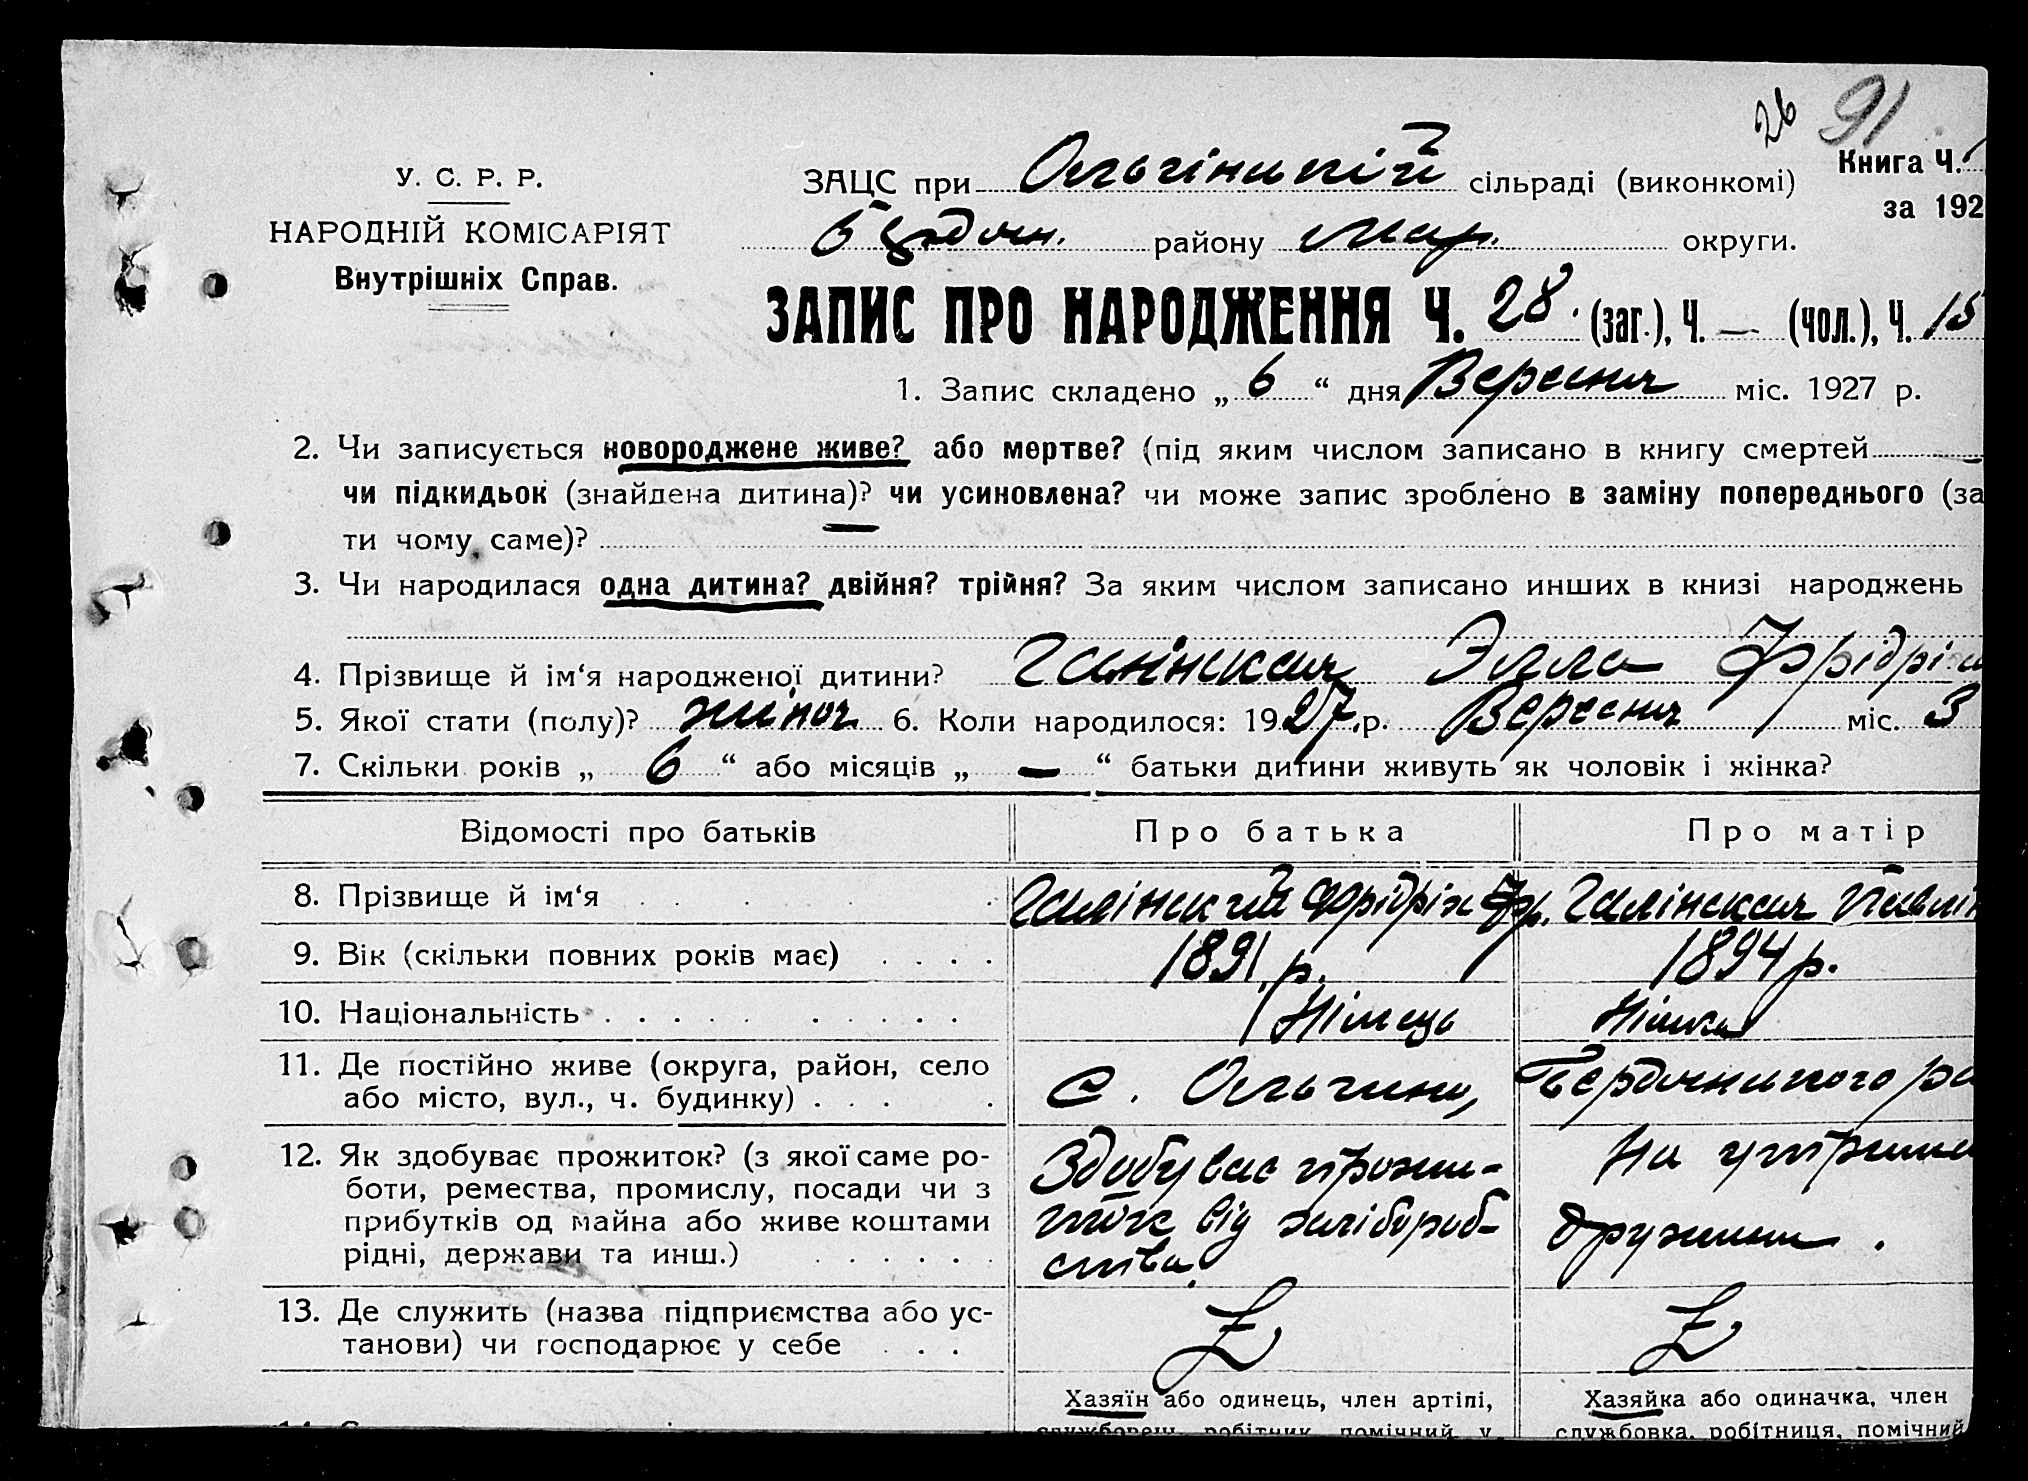 26 91
У. С. Р. Р.
НАРОДНІЙ КОМІСАРІЯТ
Внутрішніх Справ.
ЗАЦС при Ольгінській сільраді (виконкомі)
Книга Ч.
за 192
району Мар. округи.
ЗАПИС ПРО НАРОДЖЕННЯ Ч. 28. (заг.), Ч. — (чол.), Ч. 15
1. Запис складено „ 6 “ дня Вересня міс. 1927 р.
2. Чи записується новороджене живе? або мертве? (під яким числом записано в книгу смертей
чи підкидьок (знайдена дитина)? чи усиновлена? чи може запис зроблено в заміну попереднього (за
ти чому саме)? —
3. Чи народилася одна дитина? двійня? трійня? За яким числом записано инших в книзі народжень
4. Прізвище й ім‘я народженої дитини? Элла Фрідрі
5. Якої стати (полу)? жіноч 6. Коли народилося: 1927.р. Вересня міс. 3
7. Скільки років „ 6 “ або місяців „ — “ батьки дитини живуть як чоловік і жінка?
Відомості про батьків Про батька Про матір
8. Прізвище й ім‘я . . . . . Галінский Фрідріх Фр. Галінская Павлін
9. Вік (скільки повних років має) . . . . 1891 р. 1894 р.
10. Національність . . . . . . . . . . Німець Німка
11. Де постійно живе (округа, район, село
або місто, вул., ч. будинку) . . . . с. Ольгино, Бердянського ра
12. Як здобуває прожиток? (з якої саме ро-
боти, ремества, промислу, посади чи з
прибутків од майна або живе коштами
рідні, держави та инш.) . . . . . .
Здобуває прожи-
ток від хлібороб-
ства.
На утрима
дружини.
13. Де служить (назва підприємства або ус-
танови) чи господарює у себе . . .
Хазяїн або одинець, член артілі,
службовець, робітник, помічний у
Хазяйка або одиначка, член
службовка, робітниця, помічний